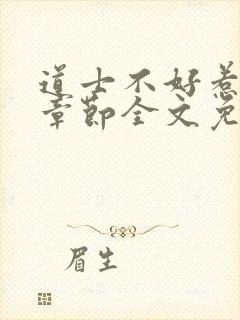 道士不好惹
章节全文免
眉生